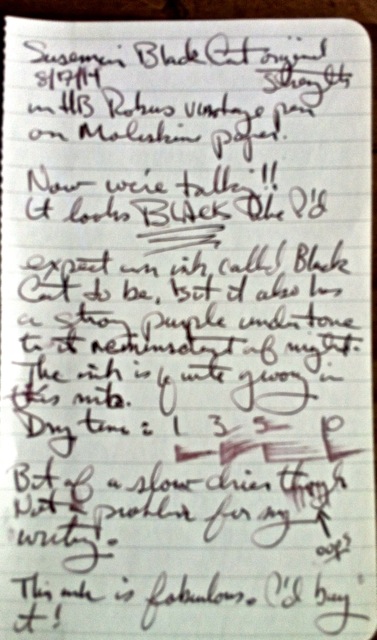 Susemai Black Cat original
8/17/14 strength
in HB Robus vintage pen
on Moleskine paper.
Now we're talkin!!
It looks BLACK like I'd
expect an ink called Black
Cat to be, but it also has
a strong purple undertone
to it reminiscent of night.
The ink is quite gooy in
this nib.
Dry time: 1 3 5 10
Bit of a slow drier though
Not a problem for my
writing.
oops
This ink is fabulous. I'd buy
it!